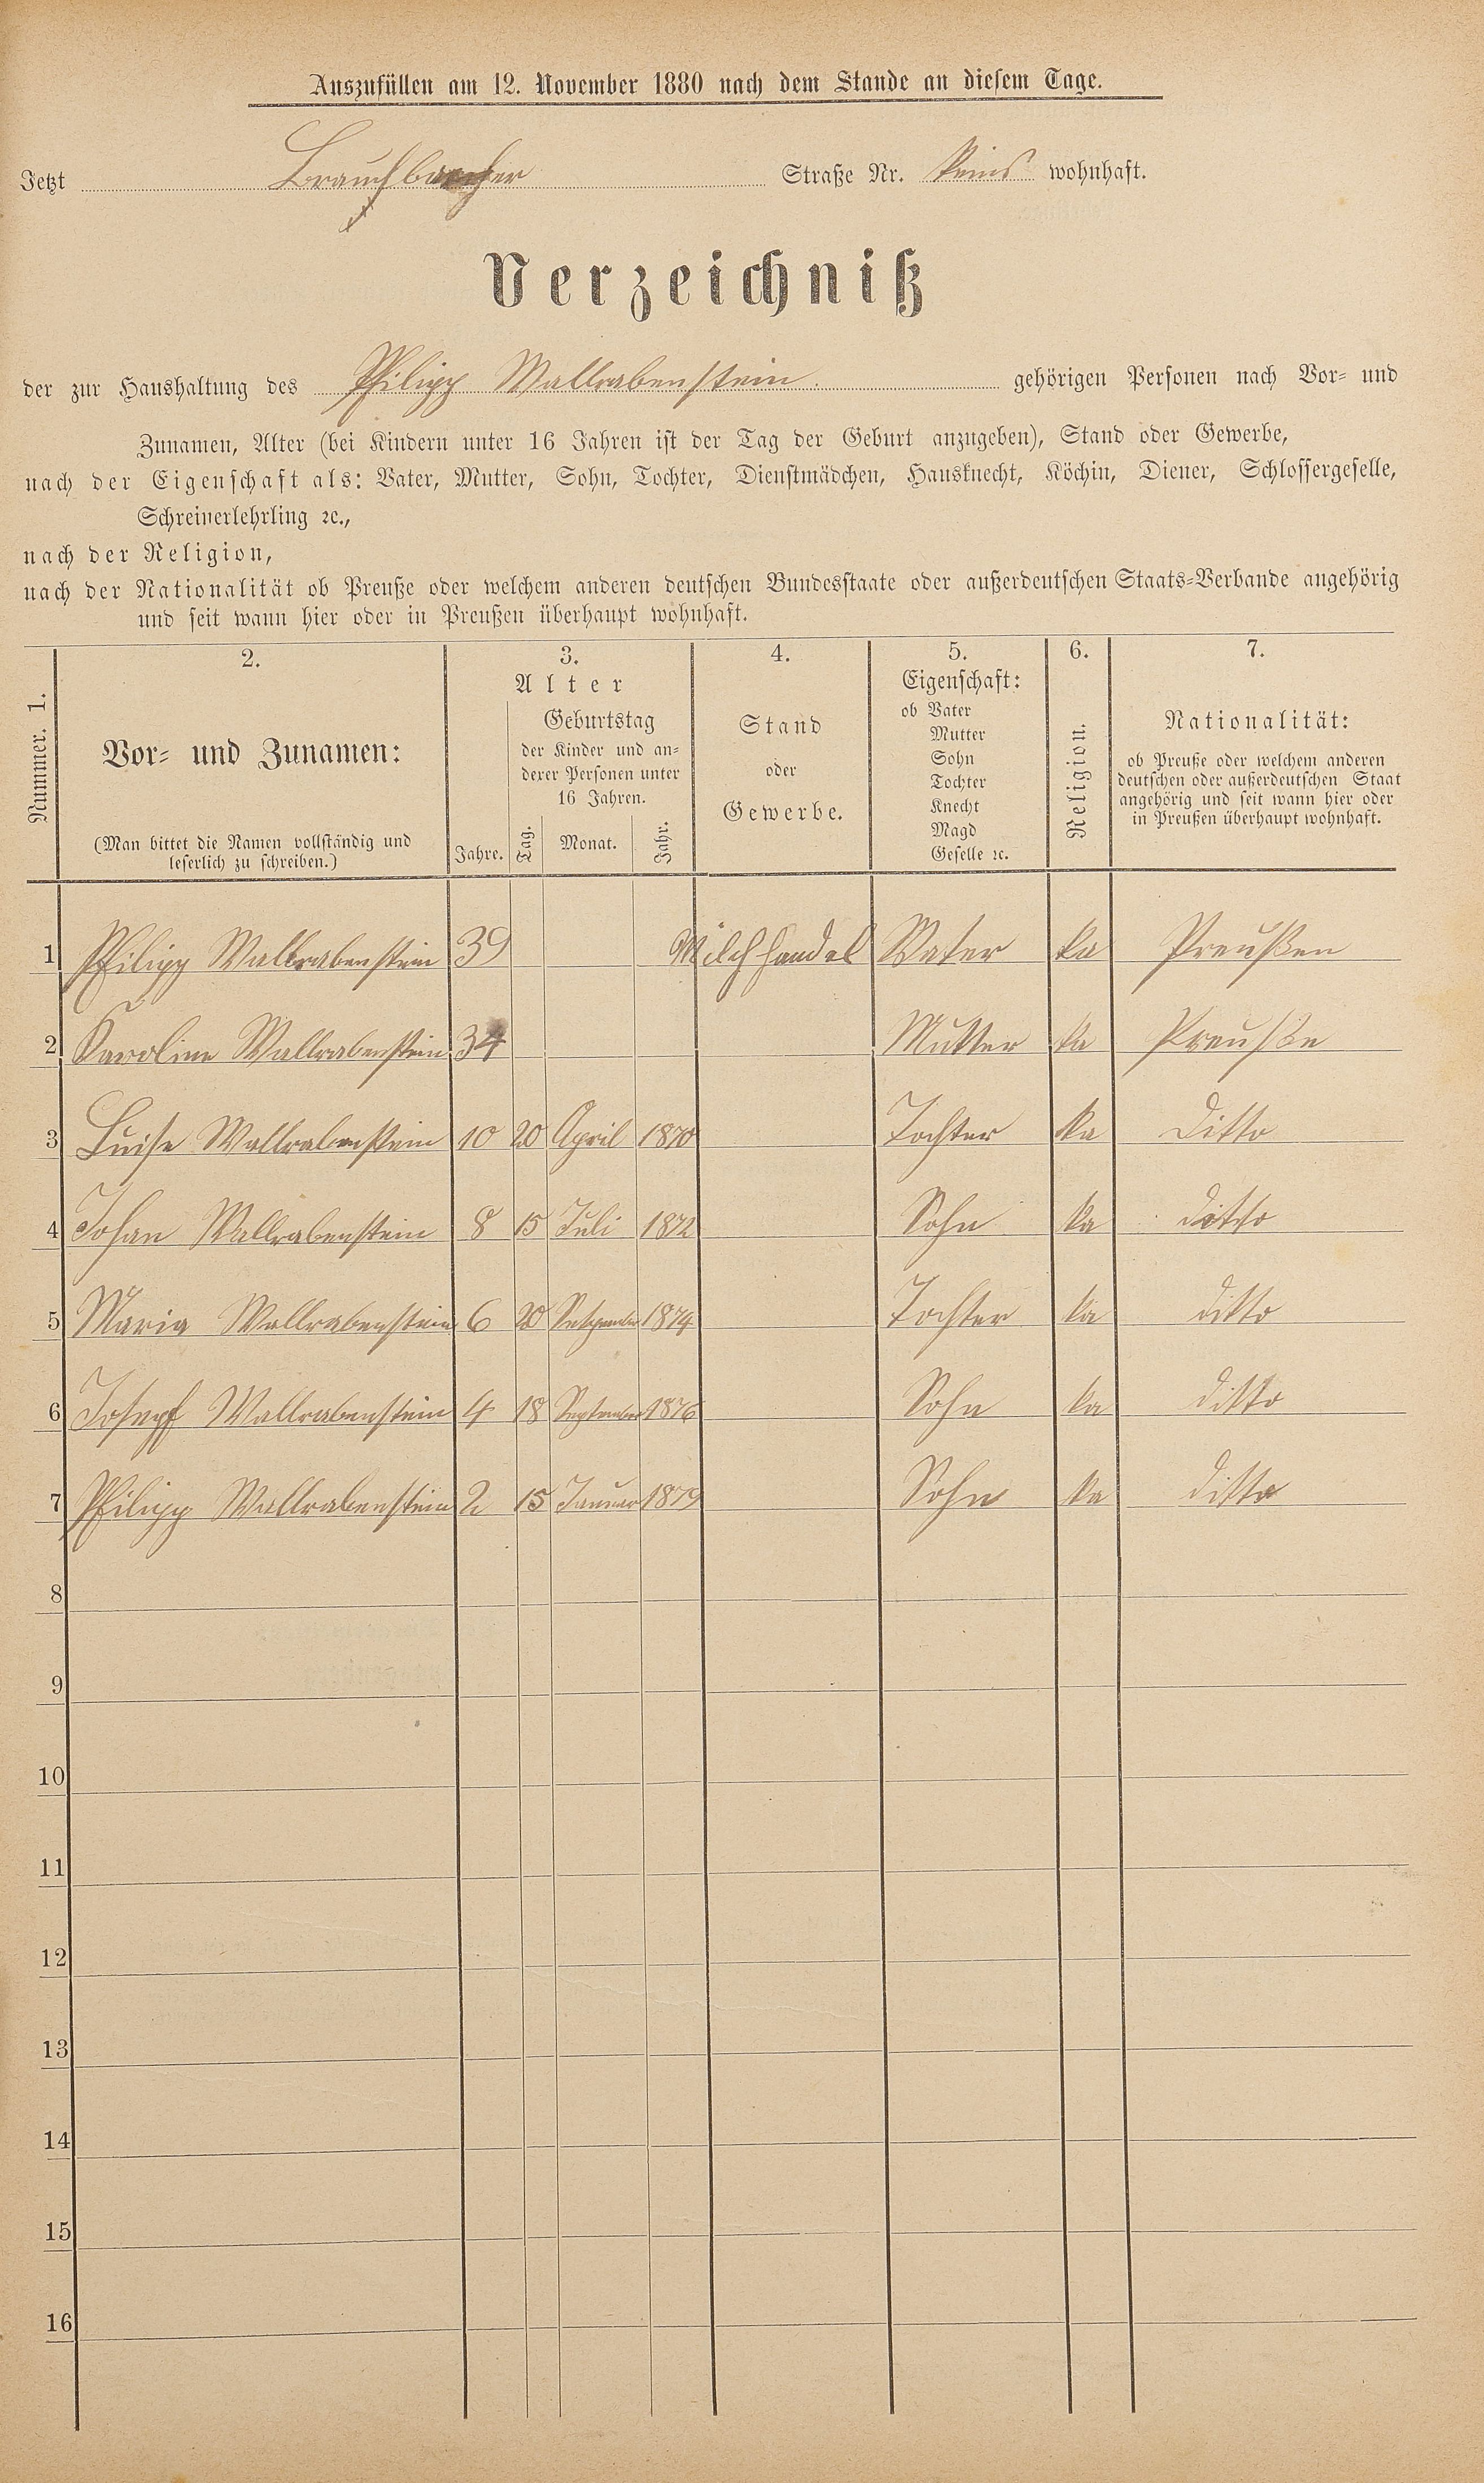 Auszufüllen am 12. November 1880 nach dem Stande an diesem Tage.
Jetzt Straße Nr. wohnhaft.
Verzeichniß
der zur Haushaltung des Philipp Wallrabenstein. gehörigen Personen nach Vor- und
Zunamen, Alter (bei Kindern unter 16 Jahren ist der Tag der Geburt anzugeben), Stand oder Gewerbe,
nach der Eigenschaft als: Vater, Mutter, Sohn, Tochter, Dienstmädchen, Hausknecht, Köchin, Diener, Schlossergeselle,
Schreinerlehrling ꝛc.,
nach der Religion,
nach der Nationalität ob Preuße oder welchem anderen deutschen Bundesstaate oder außerdeutschen Staats-Verbande angehörig
und seit wann hier oder in Preußen überhaupt wohnhaft.
Nummer. 1.
2.
Vor- und Zunamen:
(Man bittet die Namen vollständig und
leserlich zu schreiben.)
3.
Alter
Jahre.
Geburtstag
der Kinder und an-
derer Personen unter
16 Jahren.
Tag. Monat. Jahr.
4.
Stand
oder
Gewerbe.
5.
Eigenschaft:
ob Vater
Mutter
Sohn
Tochter
Knecht
Magd
Geselle ꝛc.
6.
Religion.
7.
Nationalität:
ob Preuße oder welchem anderen
deutschen oder außerdeutschen Staat
angehörig und seit wann hier oder
in Preußen überhaupt wohnhaft.
1 Philipp Wallrabenstein 39 Milchhandel Vater ka Preußen
2 Karoline Wallrabenstein 34 Mutter ka Preuße
3 Luise Wallrabenstein 10 20 April 1870 Tochter ka Ditto
4 Johan Wallrabenstein 8 15 Juli 1872 Sohn ka ditto
5 Maria Wallrabenstein 6 20 1874 Tochter ka ditto
6 Josepf Wallrabenstein 4 18 September 1876 Sohn ka ditto
7 Philipp Wallrabenstein 2 15 Januar 1879 Sohn ka ditto
8
9
10
11
12
13
14
15
16